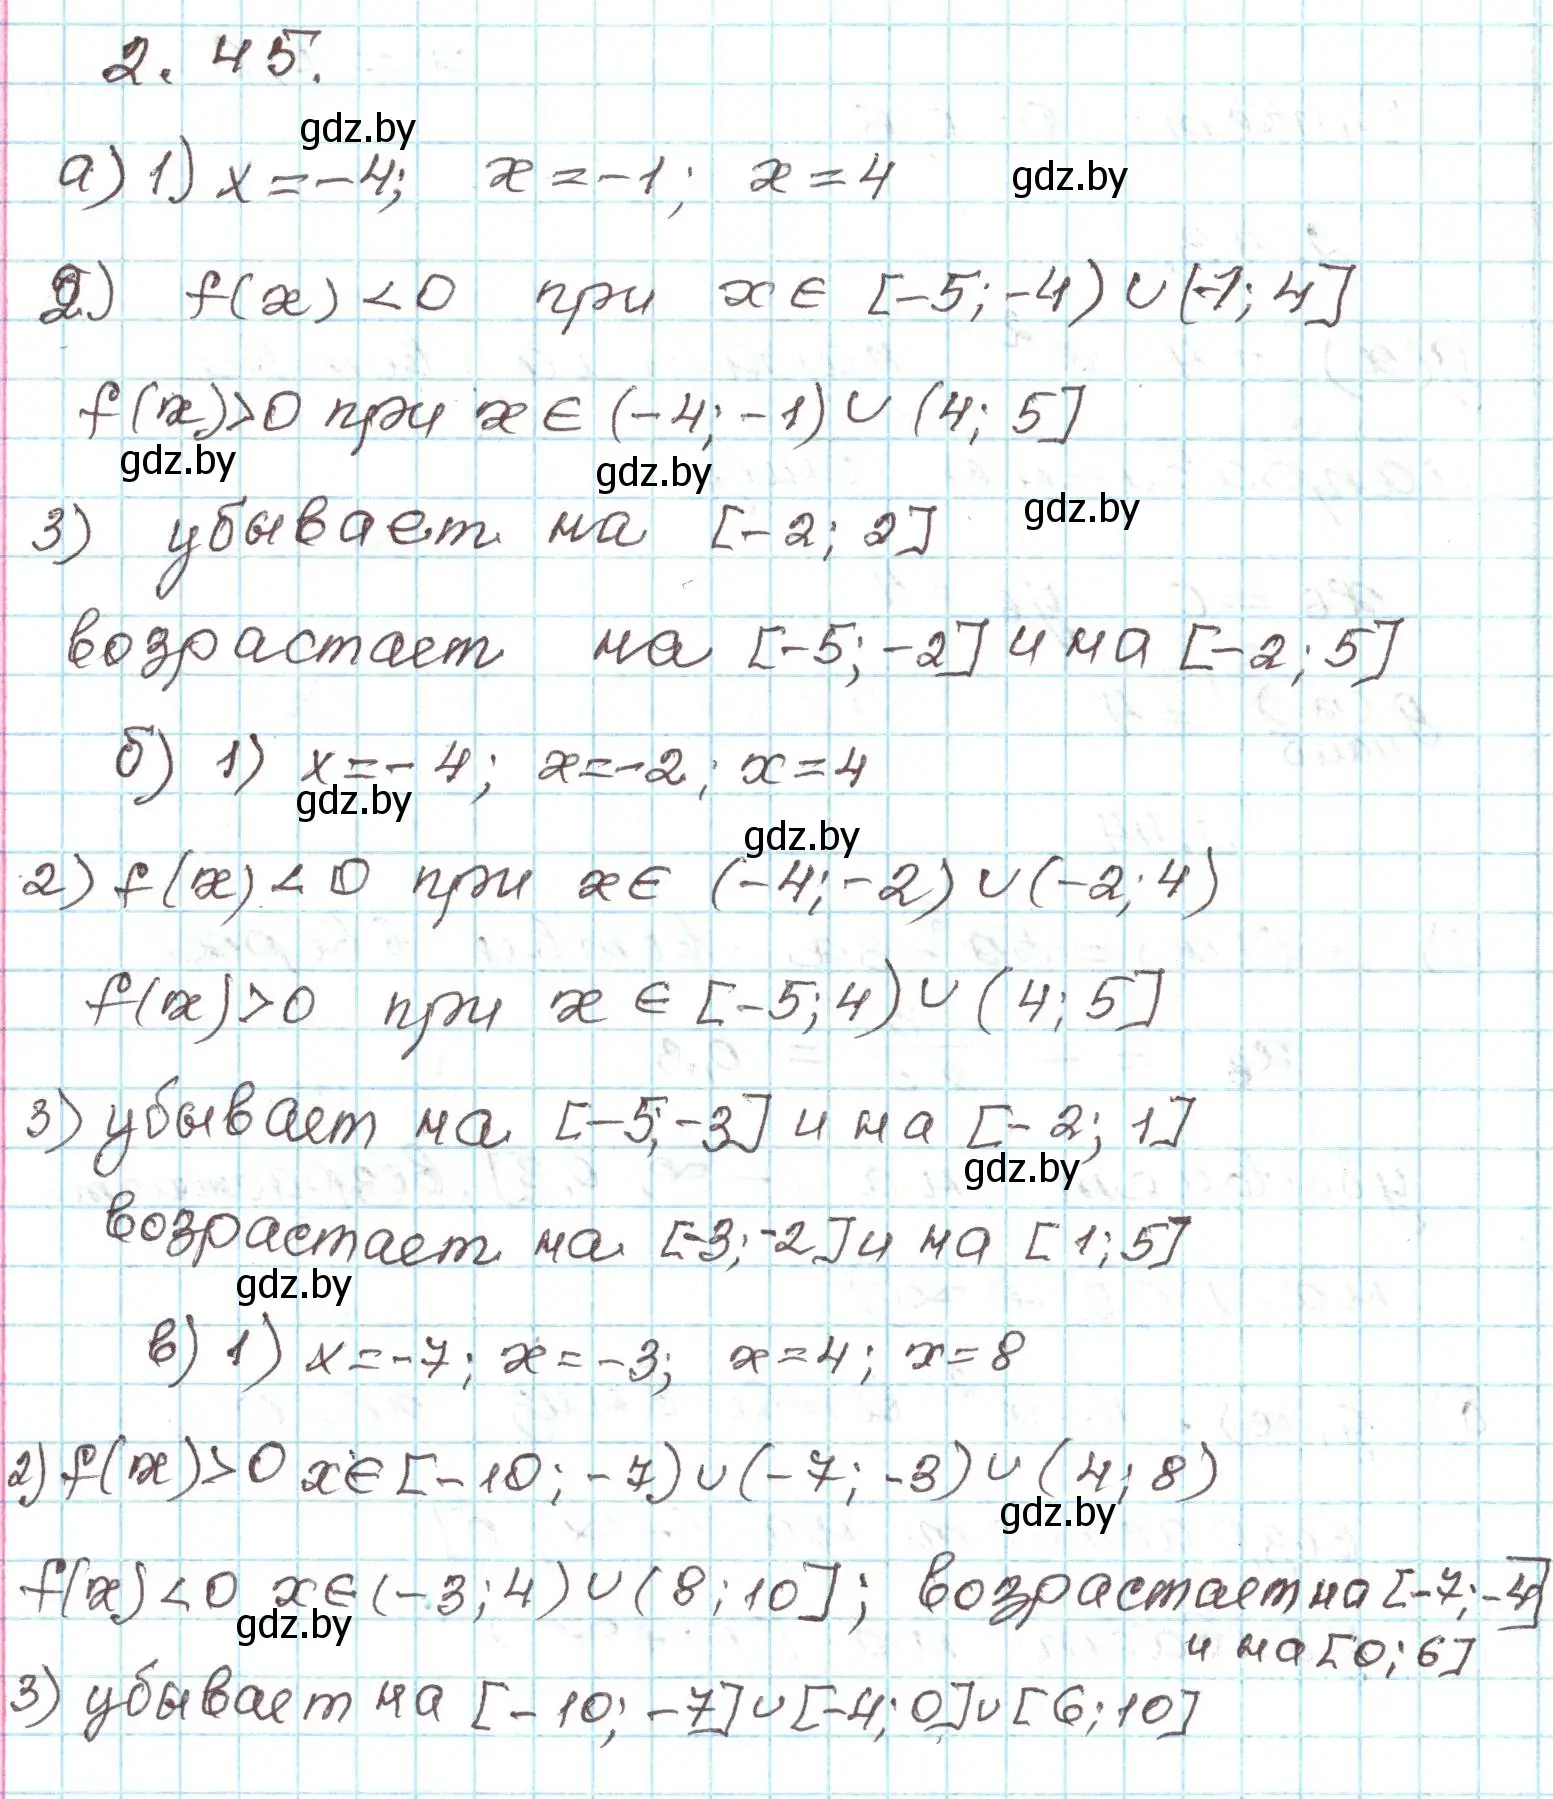 2.45.
gdz.by
а) 1) x=-4; x=-1; x=4 gdz.by
2) f(x)<0 при x∈ [-5;-4)∪(-1;4]
f(x)>0 при x∈ (-4;-1)∪(4;5]
gdz.by gdz.by
3) убывает на [-2;2] gdz.by
возрастает на [-5;-2] и на [-2;5]
б) 1) x=-4; x=-2; x=4
gdz.by
gdz.by
2) f(x)<0 при x∈ (-4;-2)∪(-2;4)
f(x)>0 при x∈[-5;4)∪(4;5]
3) убывает на [-5;-3] и на [-2;1]
gdz.by
возрастает на [-3;-2] и на [1;5]
gdz.by
в) 1) x=-7; x=-3; x=4; x=8
2) f(x)>0 x∈[-10;-7)∪(-7;-3)∪(4;8)
gdz.by
f(x)<0 x∈(-3;4)∪(8;10]; возрастает на [-7;-4]
gdz.by
и на [0;6]
3) убывает на [-10;-7]∪[-4;0]∪[6;10]